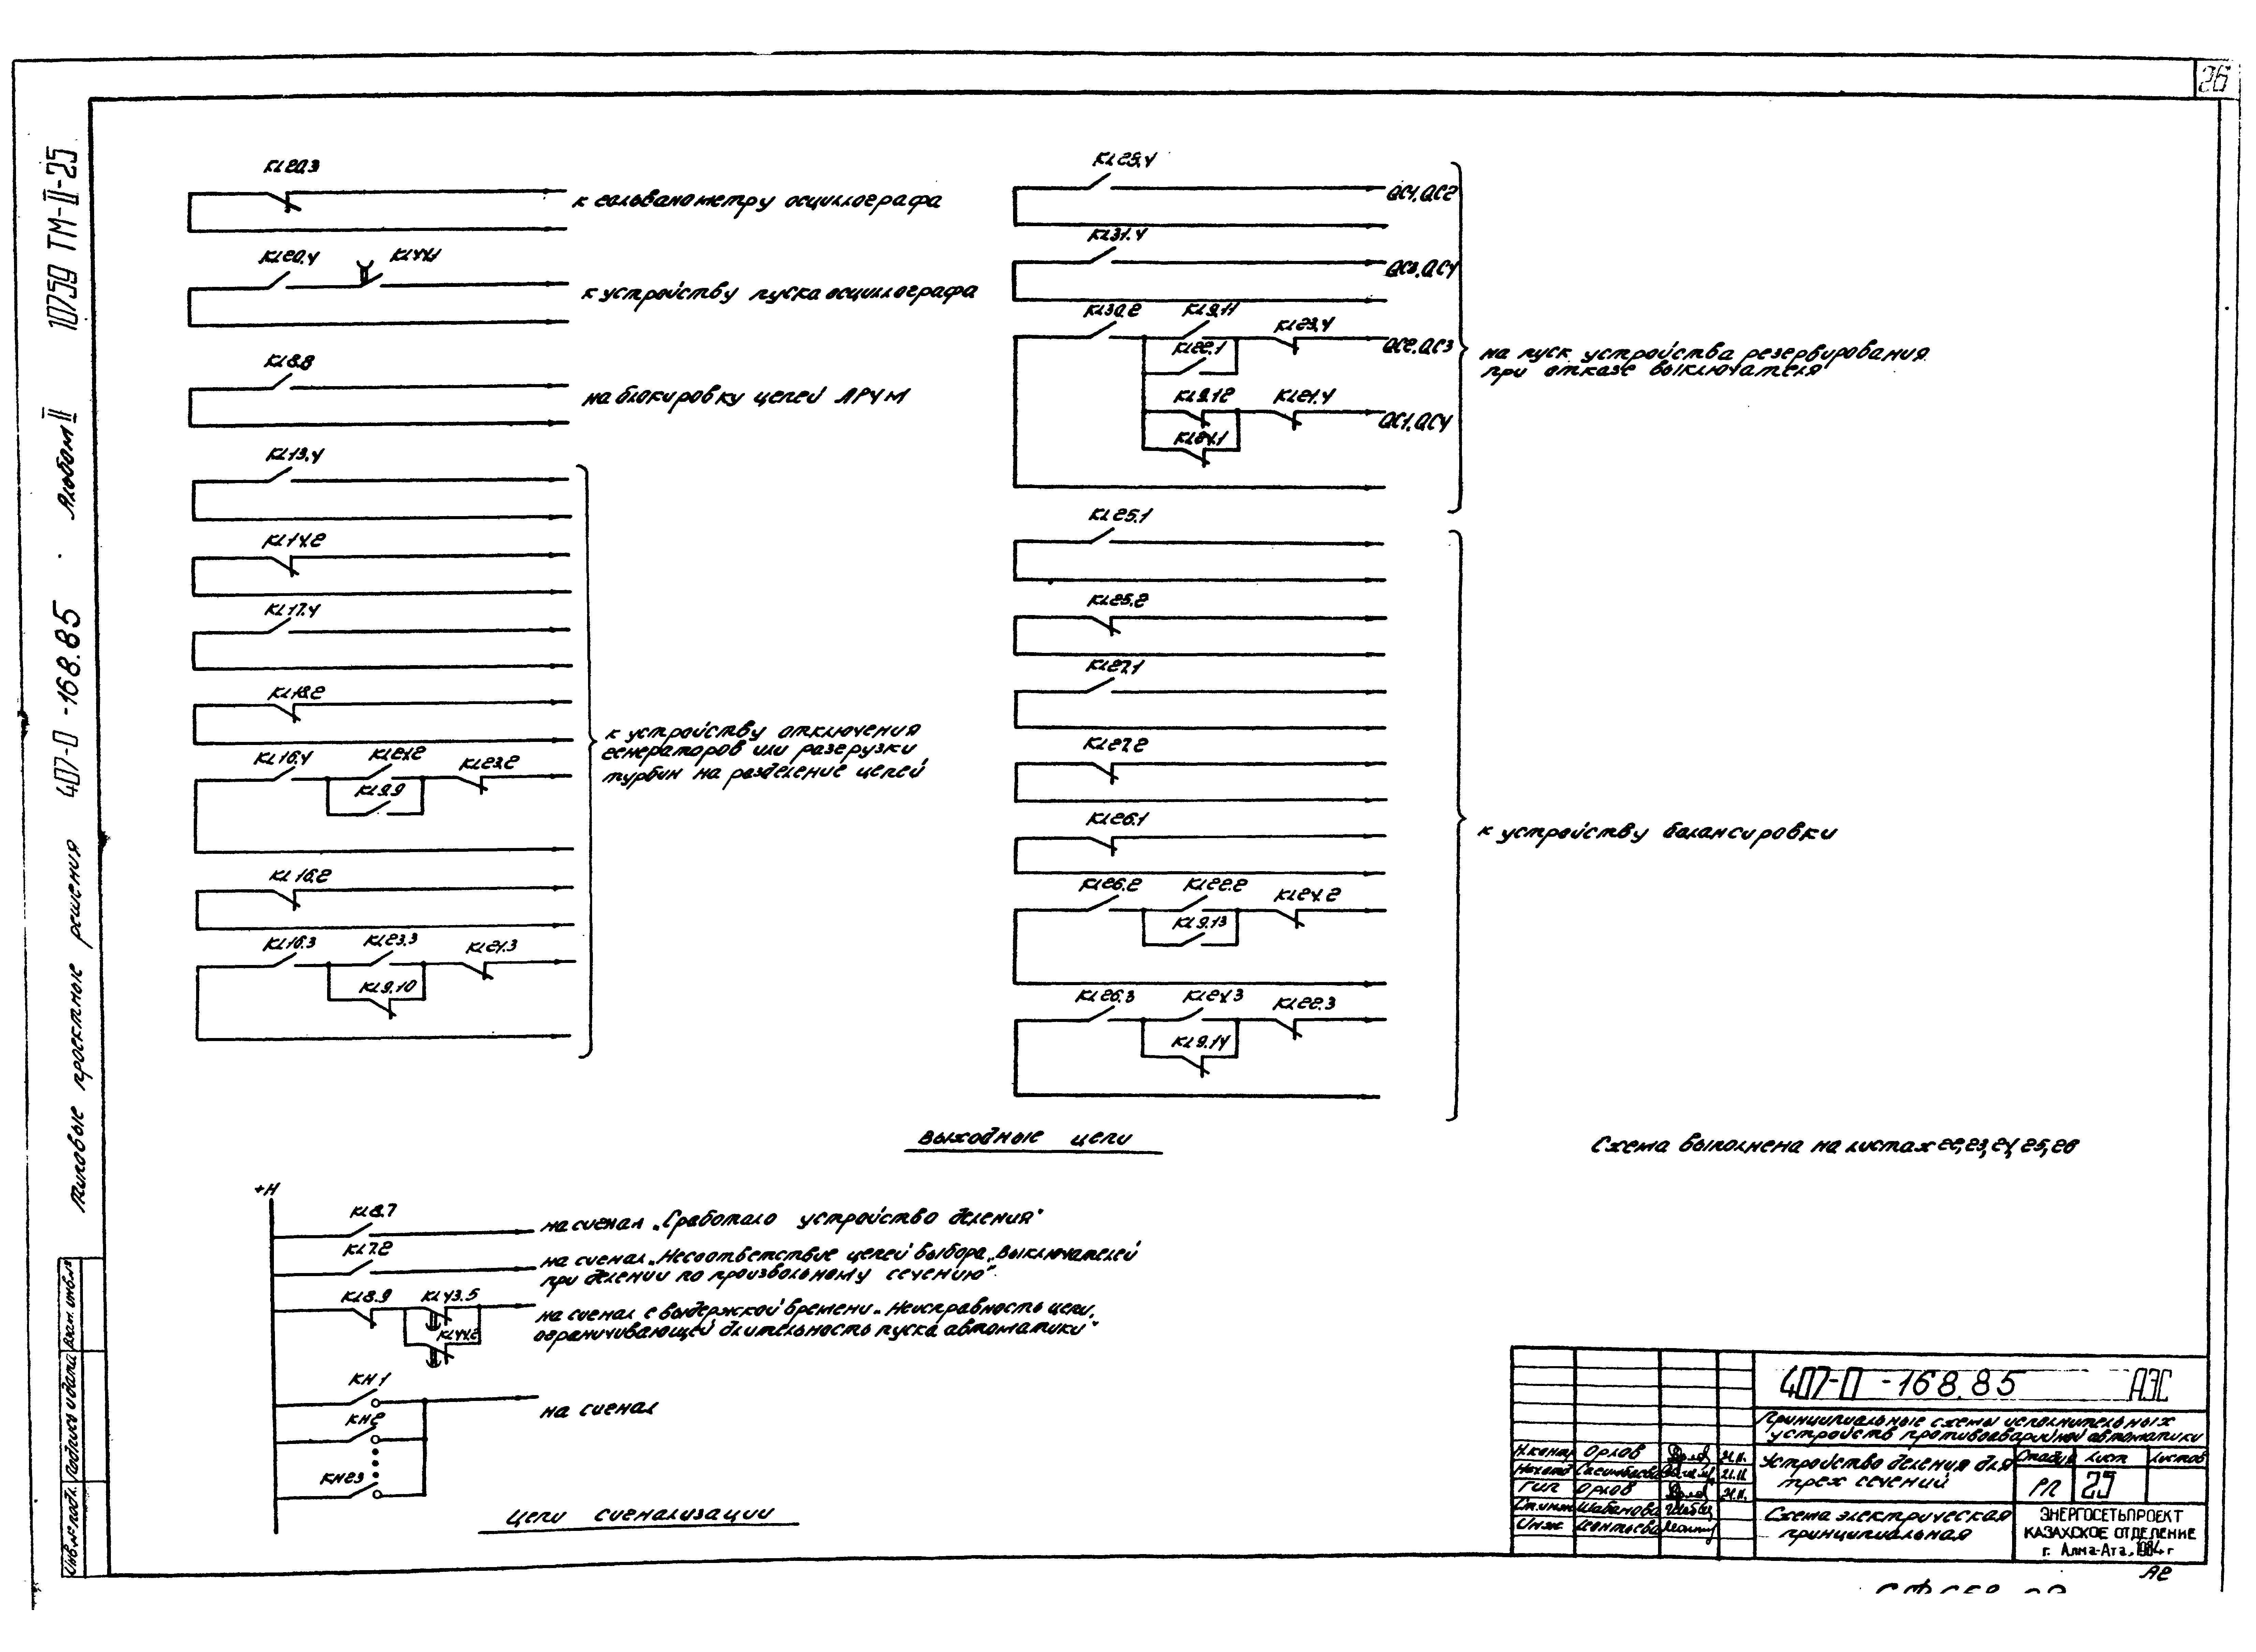 26
10759 ТМ-II-25
Альбом II
407-0-168.85
Типовые проектные решения
Взам. инв. №
Подпись и дата
Инв. № подл.
KL20.3
к гальванометру осциллографа
KL20.4 KL44.1
к устройству пуска осциллографа
KL8.8
на блокировку цепей АРЧМ
KL13.4
KL14.2
KL17.4
KL18.2
KL16.4 KL21.2 KL23.2
KL9.9
KL16.2
KL16.3 KL23.3 KL21.3
KL9.10
к устройству отключения
генераторов или разгрузки
турбин на разделение цепей
KL29.4
QC1, QC2
KL31.4
QC3, QC4
KL30.2 KL9.11 KL23.4
QC2, QC3
KL22.1
KL9.12 KL21.4
QC1, QC4
KL24.1
на пуск устройства резервирования
при отказе выключателя
KL25.1
KL25.2
KL27.1
KL27.2
KL26.1
KL26.2 KL22.2 KL24.2
KL9.13
KL26.3 KL24.3 KL22.3
KL9.14
к устройству балансировки
Выходные цепи
Схема выполнена на листах 22, 23, 24, 25, 26
+Н
KL8.7
на сигнал „Сработало устройство деления"
KL7.2
на сигнал „Несоответствие цепей выбора „выключателей
при делении по произвольному сечению"
KL8.9 KL43.5
KL44.2
на сигнал с выдержкой времени „Неисправность цепи,
ограничивающей длительность пуска автоматики"
KH1
KH2
KH23
на сигнал
Цепи сигнализации
407-0-168.85 АЭС
Принципиальные схемы исполнительных
устройств противоаварийной автоматики
Н.контр Орлов 21.11.
Нач.отд 21.11.
ГИП Орлов 21.11.
Ст.инж Шабанова
Инж Леонтьева
Устройство деления для
трех сечений
Стадия Лист Листов
РП 25
Схема электрическая
принципиальная
ЭНЕРГОСЕТЬПРОЕКТ
КАЗАХСКОЕ ОТДЕЛЕНИЕ
г. Алма-Ата, 1984 г
А2